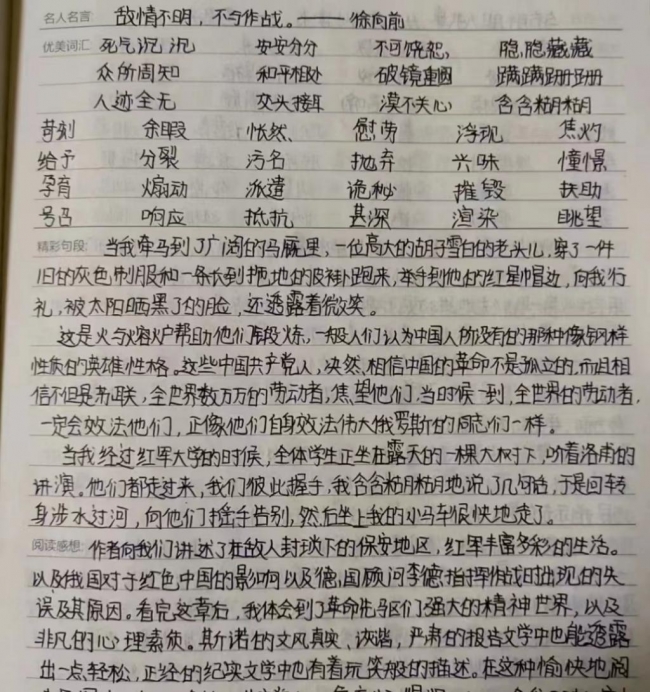 名人名言: 敌情不明，不与作战。——徐向前
优美词汇: 死气沉沉 安安分分 不可饶恕 隐隐藏藏
众所周知 和平相处 破镜重圆 蹒蹒跚跚
人迹全无 交头接耳 漠不关心 含含糊糊
苛刻 余暇 怅然 慰劳 浮现 焦灼
给予 分裂 污名 抛弃 兴味 憧憬
孕育 煽动 派遣 诡秘 摧毁 扶助
号召 响应 抵抗 甚深 渲染 眺望
精彩句段: 当我牵马到了广阔的马厩里，一位高大的胡子雪白的老头儿，穿了一件
旧的灰色制服和一条长到拖地的皮裤跑来，举手到他的红星帽边，向我行
礼，被太阳晒黑了的脸，还透露着微笑。
这是火与熔炉帮助他们锻炼，一般人们认为中国人所没有的那种像钢样
性质的英雄性格。这些中国共产党人，决然相信中国的革命不是孤立的，而且相
信不但是苏联，全世界数万万的劳动者，焦望他们，当时候一到，全世界的劳动者，
一定会效法他们，正像他们自身效法伟大俄罗斯的同志们一样。
当我经过红军大学的时候，全体学生正坐在露天的一棵大树下，听着洛甫的
讲演。他们都走过来，我们彼此握手，我含含糊糊地说了几句话，于是回转
身涉水过河，向他们摇手告别，然后坐上我的小马车很快地走了。
阅读感想: 作者向我们讲述了在敌人封锁下的保安地区，红军丰富多彩的生活。
以及俄国对于红色中国的影响以及德国顾问李德指挥作战时出现的失
误及其原因。看完这章后，我体会到了革命先驱们强大的精神世界，以及
非凡的心理素质。斯诺的文风真实、诙谐，严肃的报告文学中也能透露
出一点轻松，正经的纪实文学中也有着玩笑般的描述。在这种愉快地阅